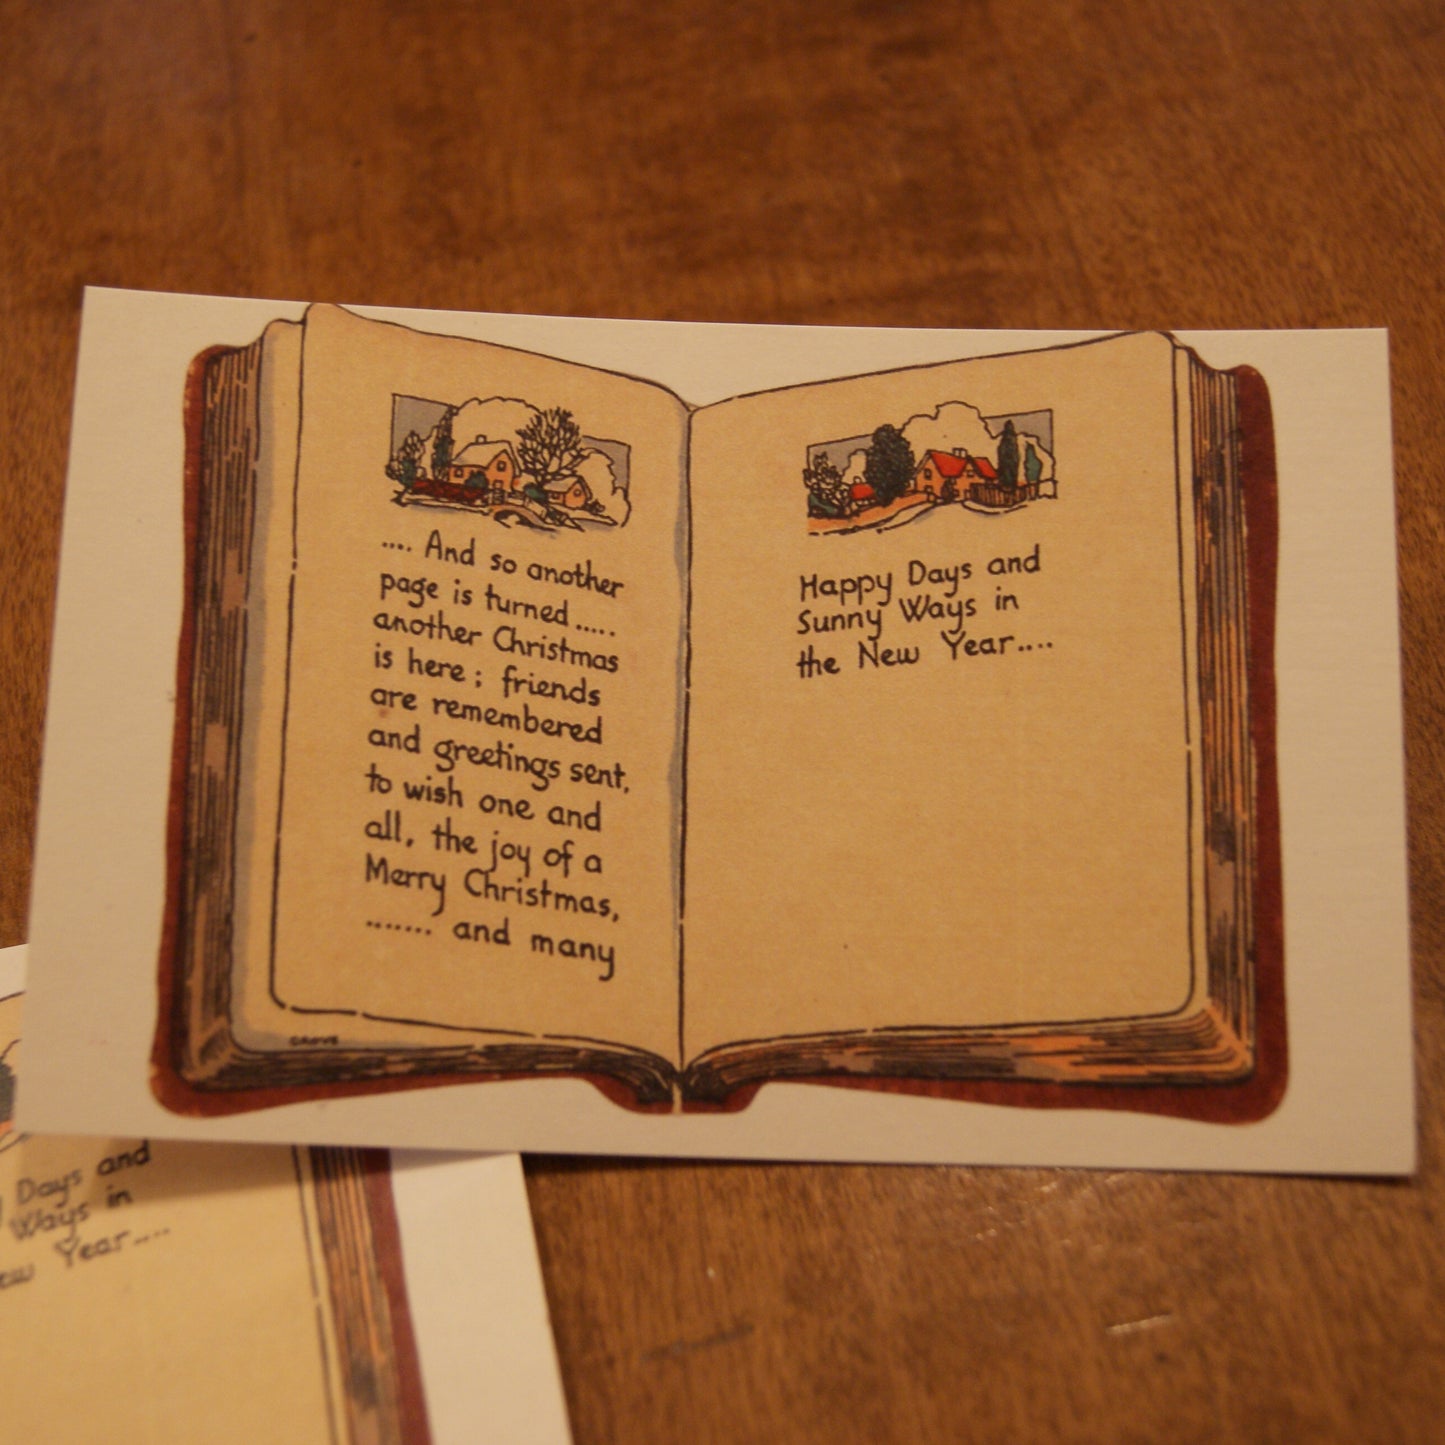 .... And so another
page is turned.....
another Christmas
is here; friends
are remembered
and greetings sent,
to wish one and
all, the joy of a
Merry Christmas,
....... and many
Happy Days and
Sunny Ways in
the New Year....
GROVE
Days and
Ways in
Year....